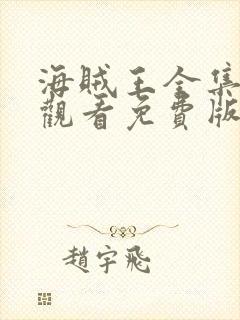 海賊王全集
觀看免費版
趙宇飛